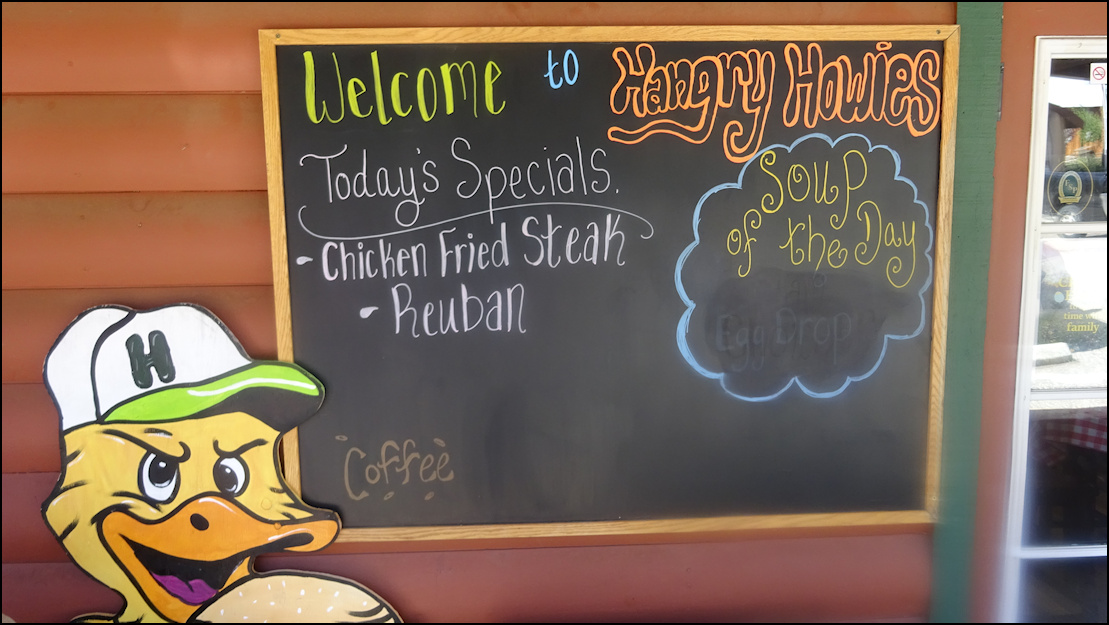 Welcome to Hangry Howies
Today's Specials.
- Chicken Fried Steak
- Reuban
Soup
of the Day
Egg Drop
Coffee
H
time w
family